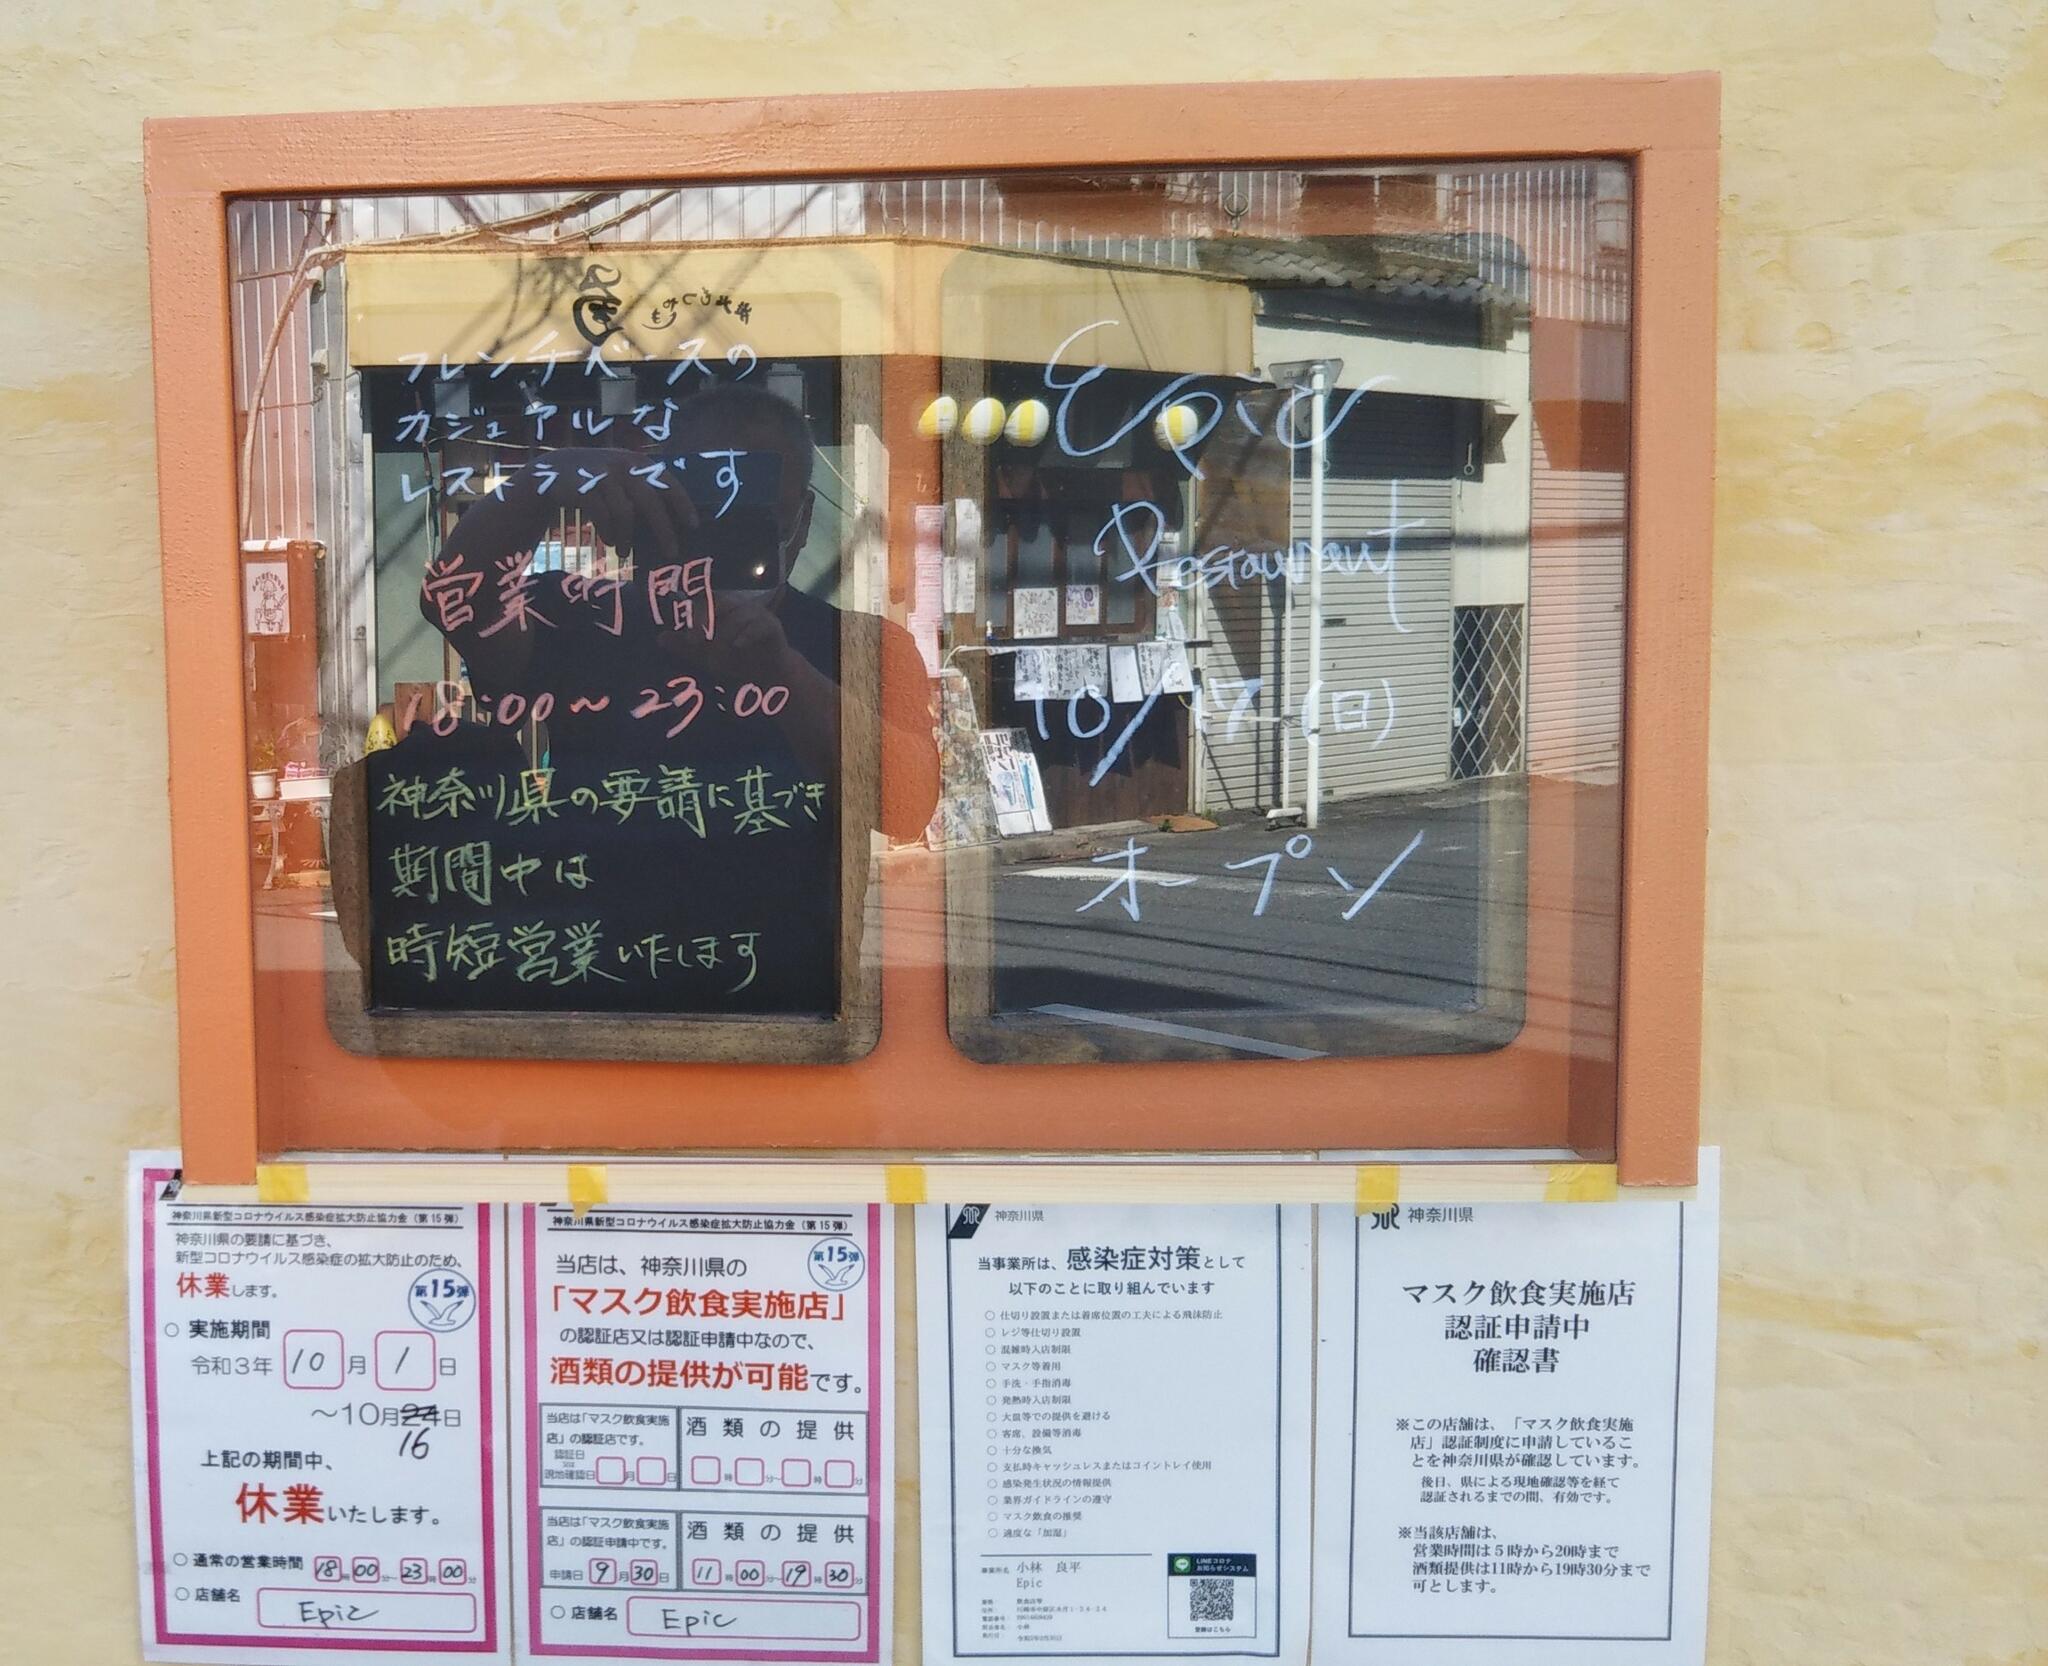 フレンチベースの
カジュアルな
レストランです
営業時間
18:00～23:00
神奈川県の要請に基づき
期間中は
時短営業いたします
Epic
Restaurant
10/17(日)
オープン
神奈川県新型コロナウイルス感染症拡大防止協力金（第15弾）
神奈川県の要請に基づき、
新型コロナウイルス感染症の拡大防止のため、
休業します。
第15弾
○ 実施期間
令和3年 10月1日
～10月24日
16
上記の期間中、
休業いたします。
○ 通常の営業時間 18時00分～23時00分
○ 店舗名 Epic
神奈川県新型コロナウイルス感染症拡大防止協力金（第15弾）
当店は、神奈川県の
第15弾
「マスク飲食実施店」
の認証店又は認証申請中なので、
酒類の提供が可能です。
当店は「マスク飲食実施店」の認証店です。
認証日
又は
現地確認日 月 日
酒類の提供
時 分～ 時 分
当店は「マスク飲食実施店」の認証申請中です。
申請日 9月30日
酒類の提供
11時00分～19時30分
○ 店舗名 Epic
神奈川県
当事業所は、感染症対策として
以下のことに取り組んでいます
○ 仕切り設置または着席位置の工夫による飛沫防止
○ レジ等仕切り設置
○ 混雑時入店制限
○ マスク等着用
○ 手洗・手指消毒
○ 発熱時入店制限
○ 大皿等での提供を避ける
○ 客席、設備等消毒
○ 十分な換気
○ 支払時キャッシュレスまたはコイントレイ使用
○ 感染発生状況の情報提供
○ 業界ガイドラインの遵守
○ マスク飲食の推奨
○ 適度な「加湿」
事業所名 小林 良平
Epic
LINEコロナ
お知らせシステム
登録はこちら
神奈川県
マスク飲食実施店
認証申請中
確認書
※この店舗は、「マスク飲食実施
店」認証制度に申請しているこ
とを神奈川県が確認しています。
後日、県による現地確認等を経て
認証されるまでの間、有効です。
※当該店舗は、
営業時間は5時から20時まで
酒類提供は11時から19時30分まで
可とします。